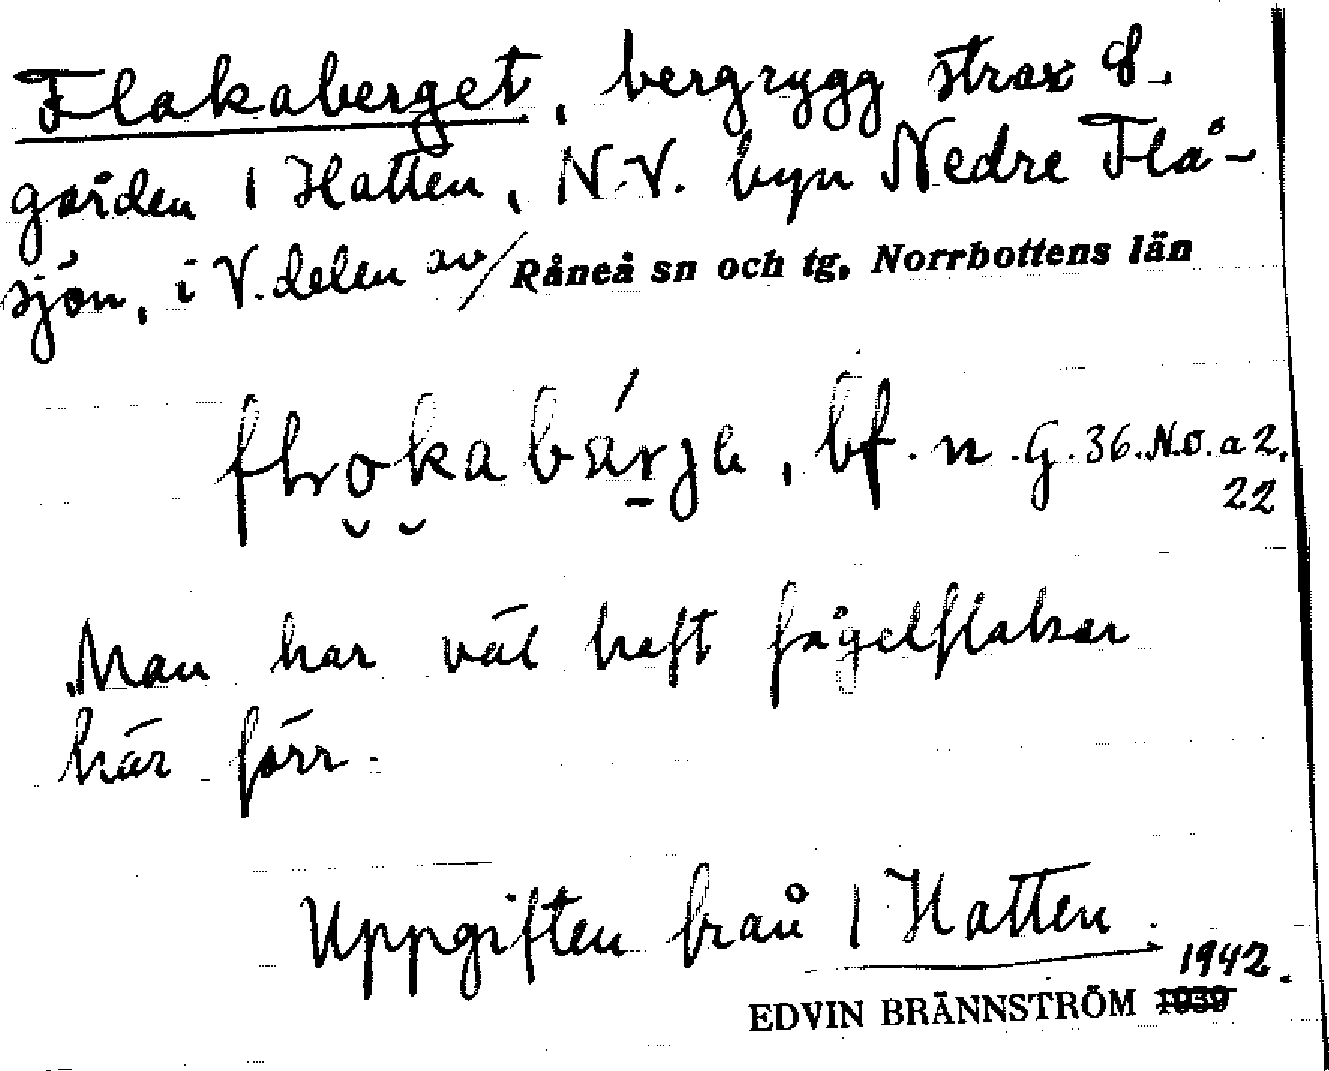 Flakaberget, bergrygg strax Ö.
gården 1 Hatten, N.V. byn Nedre Flå-
sjön, i V. delen av / Råneå sn och tg, Norrbottens län
bf. n. G. 36. N.O. a 2.
22
Man har väl haft fågelflakar
här förr.
Uppgiften från 1 Hatten.
1942.
EDVIN BRÄNNSTRÖM 1939